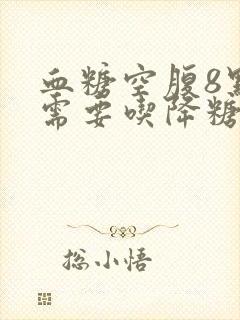 血糖空腹8點
需要喫降糖
総小悟